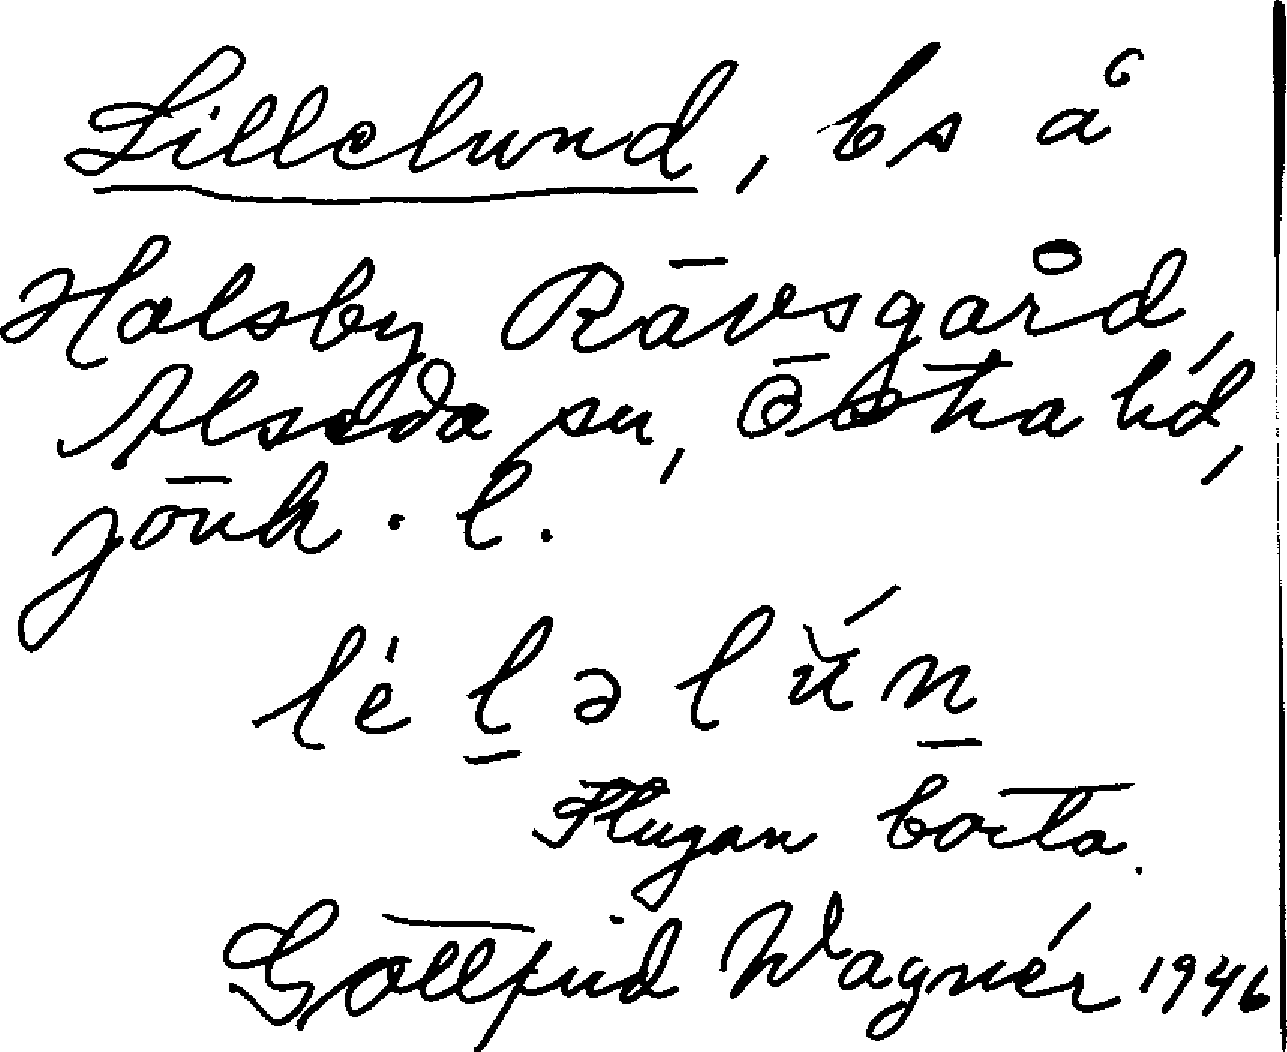 Lillelund, bs å
Holsby Rävsgård,
Alseda sn, Östra hd,
Jönk. l.
lè l̲ ə l ŭ́ n̲
Flugan borta.
Gottfrid Wagnér 1946